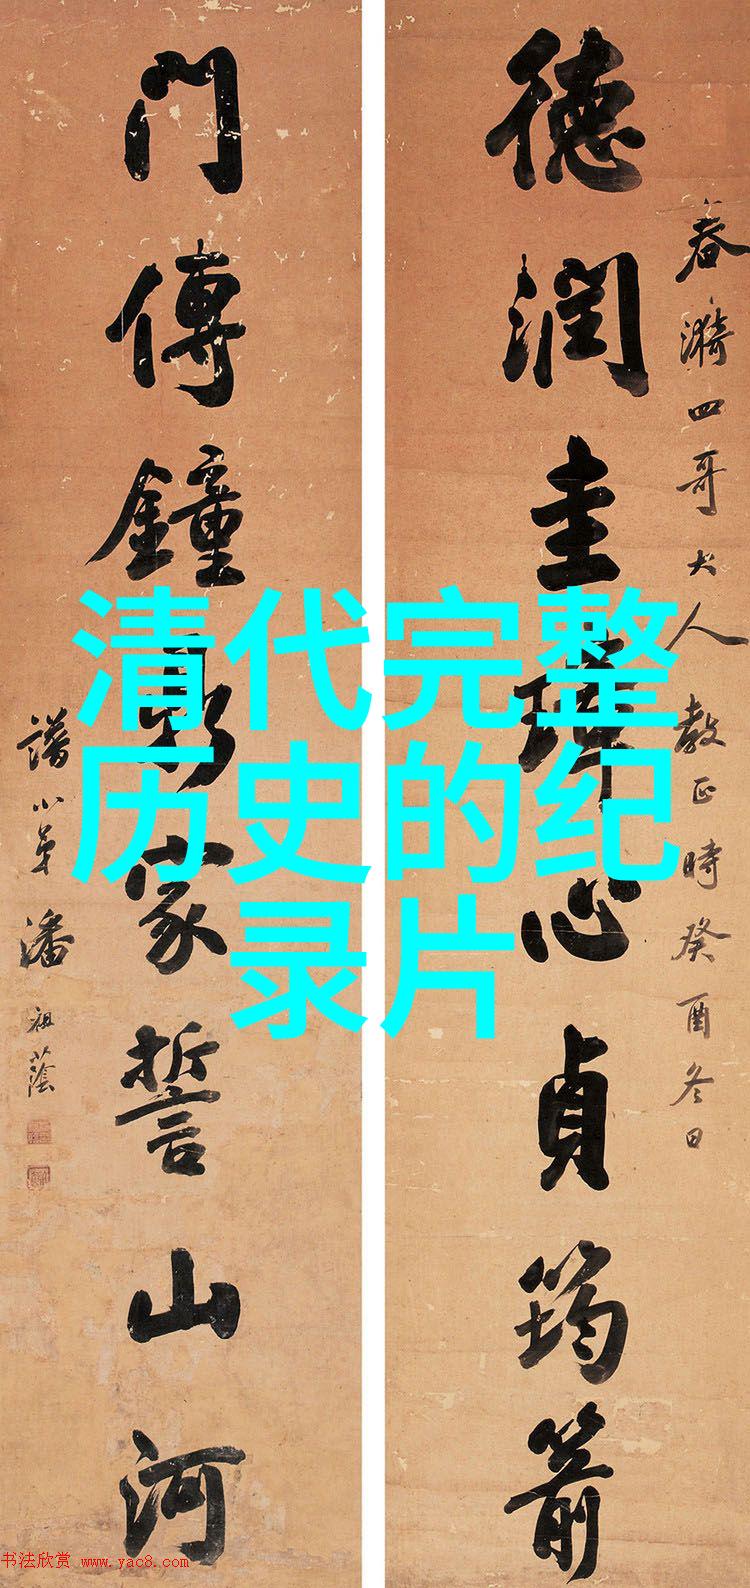 春漪四哥大人教正時癸酉冬日
德潤圭璋心貞筠箭
門傳鐘家誓山河
譜小弟潘祖蔭
清代完整
历史的纪
录片
书法欣赏 www.yac8.com